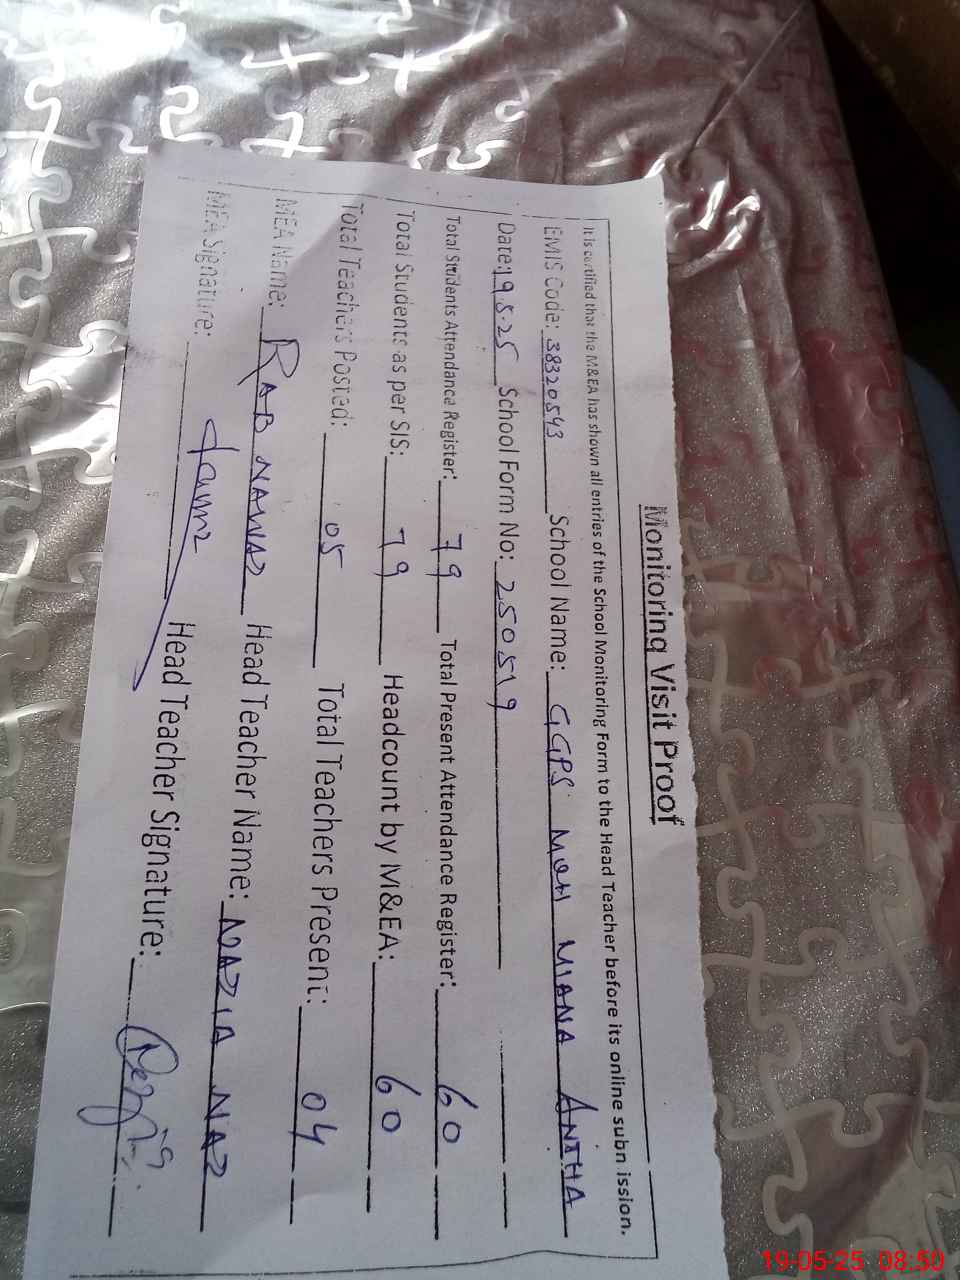 Monitoring Visit Proof
It is certified that the M&EA has shown all entries of the School Monitoring Form to the Head Teacher before its online subn ission.
EMIS Code: 38320543 School Name: GGPS MOH MIANA ANTHA
Date: 19.5.25 School Form No: 250519
Total Students Attendance Register: 79 Total Present Attendance Register: 60
Total Students as per SIS: 79 Headcount by M&EA: 60
Total Teachers Posted: 05 Total Teachers Present: 04
MEA Name: RAB NAWAZ Head Teacher Name: NAZIA NAZ
MEA Signature: Head Teacher Signature:
19-05-25 08:50